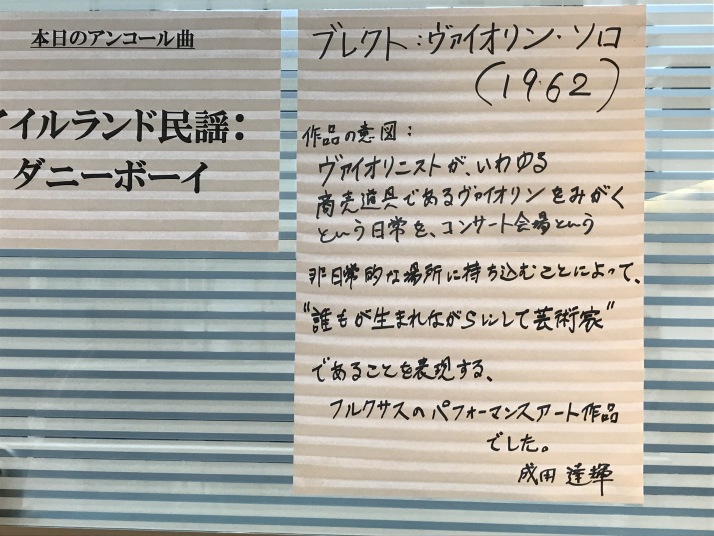 本日のアンコール曲
イルランド民謡：
ダニーボーイ
ブレクト：ヴァイオリン・ソロ
(1962)
作品の意図：
ヴァイオリニストが、いわゆる
商売道具であるヴァイオリンをみがく
という日常を、コンサート会場という
非日常的な場所に持ち込むことによって、
"誰もが生まれながらにして芸術家"
であることを表現する、
フルクサスのパフォーマンスアート作品
でした。
成田達輝